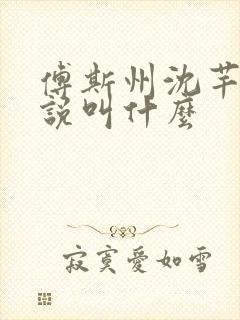 傅斯州沈芊
說叫什麼
寂寞愛如雪